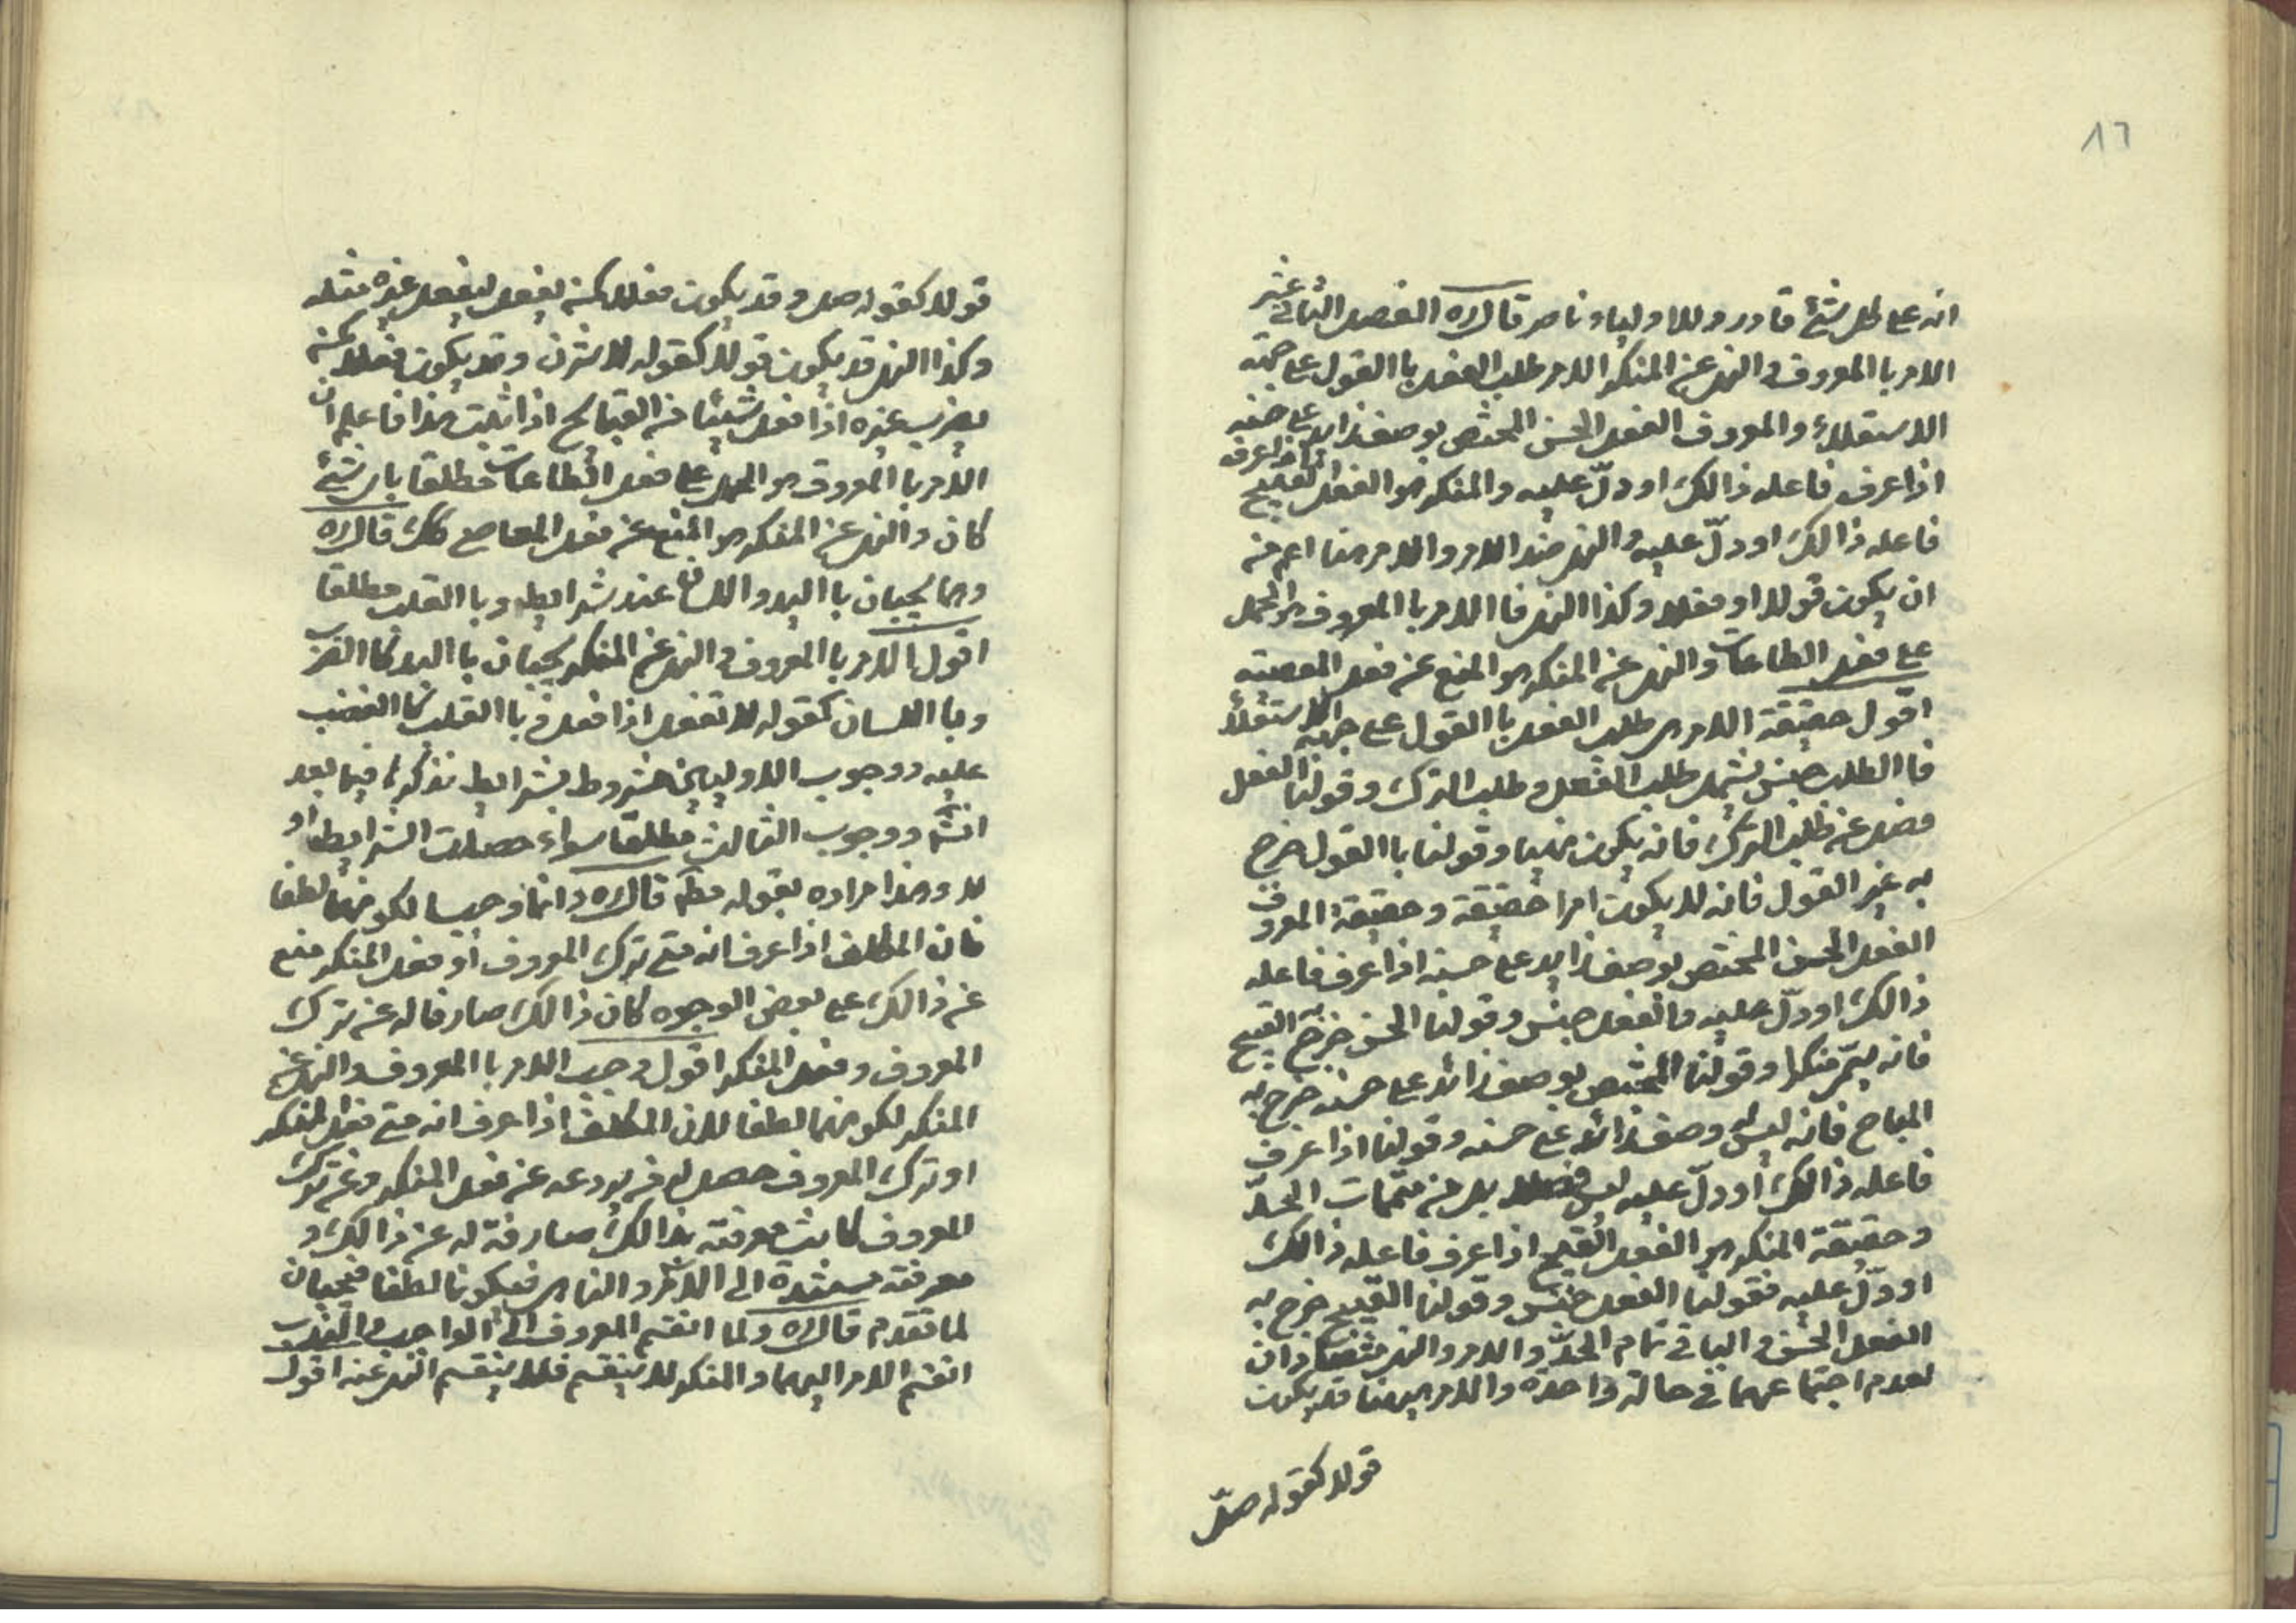 ١٦
انه على كل شئ قادر وللاولياء ناصر قال ره الفصل الثانى عشر
الامر باالمعروف والنهى عن المنكر الامر طلب الفعل باالقول على جهته
الاستعلاء والمعروف الفعل الحسن المختص بوصف زايد على حسنه
اذا عرف فاعله ذالك او دلّ عليه والمنكر هو الفعل القبيح اذا عرف
فاعله ذالك او دلّ عليه والنهى ضد الامر والامر هنا اعم من
ان يكون قولا او فعلا وكذا النهى فاالامر باالمعروف هو الحمل
على فعل الطاعات والنهى عن المنكر هو المنع عن فعل المعصية
اقول حقيقة الامر هى طلب الفعل باالقول على جهة الاستعلاء
فاالطلب جنس يشمل طلب الفعل وطلب الترك وقولنا الفعل
فصل عن طلب الترك فانه يكون نهيا وقولنا باالقول خرج
به غير القول فانه لا يكون امرا حقيقة وحقيقة المعروف
الفعل الحسن المختص بوصف زايد على حسنه اذا عرف فاعله
ذالك او دلّ عليه فاالفعل جنس وقولنا الحسن خرج به القبيح
فانه يسمّى منكرا وقولنا المختص بوصف زائد على حسنه خرج به
المباح فانه ليس له وصف زائد على حسنه وقولنا اذا عرف
فاعله ذالك او دلّ عليه ليس فصلا بل من متممات الحدّ
وحقيقة المنكر هو الفعل القبيح اذا عرف فاعله ذالك
او دلّ عليه فقولنا الفعل جنس وقولنا القبيح خرج به
الفعل الحسن والباقى تمام الحدّ والامر والنهى متضادان
لعدم اجتماعهما فى حالة واحدة والامر هيهنا قد يكون
قولا كقوله صلّ
قولا كقوله صل وقد يكون فعلا كمن يفعل ليفعل غيره مثله
وكذا النهى قد يكون قولا كقوله لا تزن وقد يكون فعلا كمن
يضرب غيره اذا فعل شيئا من القبايح اذا ثبت هذا فاعلم ان
الامر باالمعروف هو الحمل على فعل الطاعات مطلقا باى شئ
كان والنهى عن المنكر هو المنع عن فعل المعاصى كك قال ره
وهما يجبان باليد واللسان عند شرايطه وباالقلب مطلقا
اقول الامر باالمعروف والنهى عن المنكر يجبان باليد كاالضرب
وبااللسان كقوله لا تفعل اذا فعل وباالقلب كاالغضب
عليه ووجوب الاوليين مشروط بشرايط نذكرها فيما بعد
انشا ووجوب الثالث مطلقا سواء حصلت الشرايط او
لا وهذا مراده بقوله مط قال ره وانما وجبا لكونهما لطفا
فان المكلف اذا عرف انه متى ترك المعروف او فعل المنكر منع
عن ذالك على بعض الوجوه كان ذالك صارفا له عن ترك
المعروف وفعل المنكر اقول وجب الامر باالمعروف والنهى عن
المنكر لكونهما لطفا لان المكلف اذا عرف انه متى فعل المنكر
او ترك المعروف حصل له من يردعه عن فعل المنكر وعن ترك
المعروف كانت معرفته بذالك صارفة له عن ذالك و
معرفته مستندة الى الامر والناهى فيكونا لطفا فيجبان
لما تقدم قال ره ولما انقسم المعروف الى الواجب والندب
انقسم الامر اليهما والمنكر لا ينقسم فلا ينقسم النهى عنه اقول